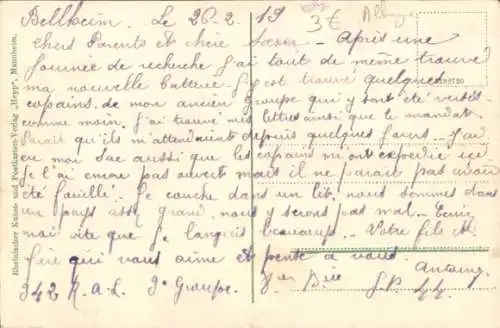 Bellheim. Le 26-2 19
3€
Chers Parents et chère Soeur - Après une
journée de recherche j'ai tout de même trouvé
ma nouvelle batterie. J'y est trouvé quelques
copains de mon ancien groupe qui y sont été versés
comme moin. J'ai trouvé mes lettres ainsi que le mandat.
Parait qu'ils m'attendaient depuis quelques jours - J'ai
eu mon sac aussi que les copains m'ont expedié ici
Je l'ai encor pas ouvert mais il ne parait pas avoir
été fouillé. Je couche dans un lit. nous sommes dans
un pays assez grand. nous y serons pas mal.
moi vite que je languis beaucoup. Votre fils et
frère qui vous aime et pense à vous.
Antoine
342 R.A.L. 3e Groupe. S.P. 44
Rheinischer Kunst- und Postkarten-Verlag „Hepp", Mannheim.